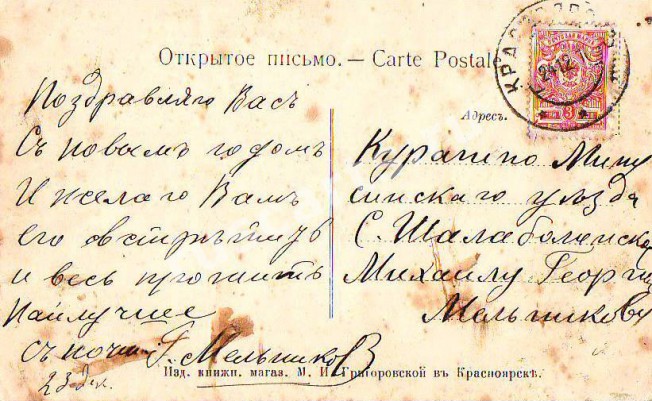 Открытое письмо. — Carte Postale
Поздравляю Васъ
Съ новымъ годомъ
И желаю Вамъ
его встрѣтить
и весь прожить
Наилучше
съ почт. Г. Мельниковъ
23 дек.
24 12
3
Адресъ.
Курагино Мину
синскаго уѣзда
С. Шалаболенско
Михаилу Георги
Мельникову
Изд. книжн. магаз. М. И. Григоровской въ Красноярскѣ.